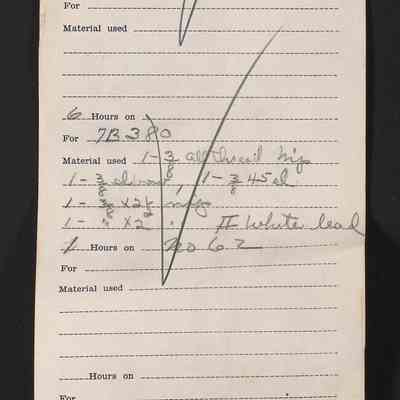 For
Material used
6 Hours on
For 7B380
Material used 1- 3/8 all thread nip
1- 3/8 elbow, 1- 3/8 45 el
1- 3/8 x 2 nip
1- " x 2 " II White lead
1 Hours on No 62
For
Material used
Hours on
For